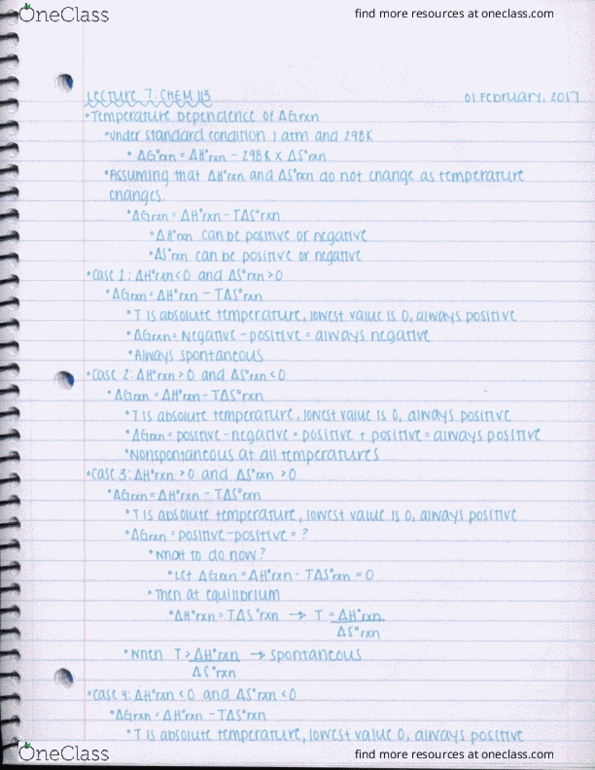 OneClass
find more resources at oneclass.com
Lecture 7: CHEM 113
01 February, 2017
•Temperature Dependence of ΔGrxn
•under standard condition 1 atm and 298K
•ΔG°rxn = ΔH°rxn - 298K x ΔS°rxn
•Assuming that ΔH°rxn and ΔS°rxn do not change as temperature
changes.
•ΔGrxn = ΔH°rxn - TΔS°rxn
•ΔH°rxn can be positive or negative
•ΔS°rxn can be positive or negative
•Case 1: ΔH°rxn < 0 and ΔS°rxn > 0
•ΔGrxn = ΔH°rxn - TΔS°rxn
•T is absolute temperature, lowest value is 0, always positive
•ΔGrxn = Negative - positive = always negative
•Always spontaneous
•Case 2: ΔH°rxn > 0 and ΔS°rxn < 0
•ΔGrxn = ΔH°rxn - TΔS°rxn
•T is absolute temperature, lowest value is 0, always positive
•ΔGrxn = positive - negative = positive + positive = always positive
•Nonspontaneous at all temperatures
•Case 3: ΔH°rxn > 0 and ΔS°rxn > 0
•ΔGrxn = ΔH°rxn - TΔS°rxn
•T is absolute temperature, lowest value is 0, always positive
•ΔGrxn = positive - positive = ?
•What to do now?
•Let ΔGrxn = ΔH°rxn - TΔS°rxn = 0
•Then at equilibrium
•ΔH°rxn = TΔS°rxn → T = ΔH°rxn
ΔS°rxn
•When T > ΔH°rxn → spontaneous
ΔS°rxn
•Case 4: ΔH°rxn < 0 and ΔS°rxn < 0
•ΔGrxn = ΔH°rxn - TΔS°rxn
•T is absolute temperature, lowest value 0, always positive
OneClass
find more resources at oneclass.com